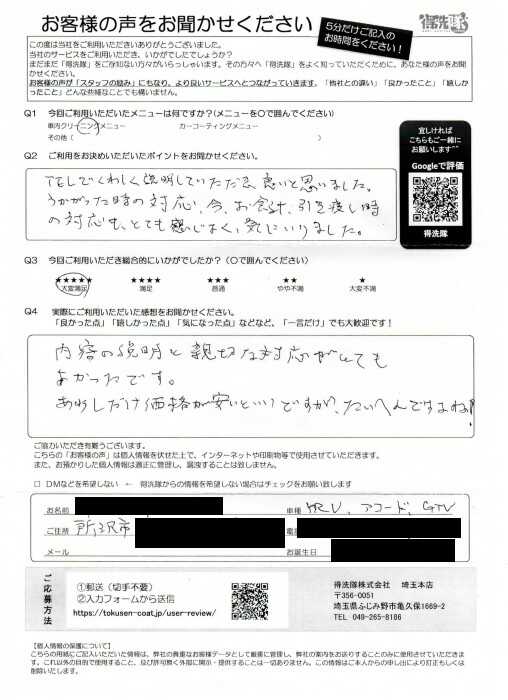 お客様の声をお聞かせください
5分だけご記入の
お時間をください！
得洗隊
この度は当社をご利用いただきありがとうございました。
当社のサービスをご利用いただき、いかがでしたでしょうか？
まだまだ「得洗隊」をご存知ない方々がいらっしゃいます。その方々へ「得洗隊」をよく知っていただくために、あなた様の声をお聞かせください。
お客様の声が「スタッフの励み」にもなり、より良いサービスへとつながっていきます。「他社との違い」「良かったこと」「嬉しかったこと」どんな些細なことでも構いません。
Q1 今回ご利用いただいたメニューは何ですか？(メニューを〇で囲んでください)
車内クリーニングメニュー カーコーティングメニュー
その他（ ）
宜しければ
こちらもご一緒に
お願いします^^
Googleで評価
得洗隊
Q2 ご利用をお決めいただいたポイントをお聞かせください。
TELでくわしく説明していただき良いと思いました。
うかがった時の対応、今、お会計、引き渡し時
の対応も、とても感じよく、気にいりました。
Q3 今回ご利用いただき総合的にいかがでしたか？（〇で囲んでください）
★★★★★ ★★★★ ★★★ ★★ ★
大変満足 満足 普通 やや不満 大変不満
Q4 実際にご利用いただいた感想をお聞かせください。
「良かった点」「嬉しかった点」「気になった点」などなど、「一言だけ」でも大歓迎です！
内容の説明と親切な対応がとても
よかったです。
あと少しだけ価格が安いといいですが、たいへんですよね！
ご協力いただき有難うございます。
こちらの「お客様の声」は個人情報を伏せた上で、インターネットや印刷物等で使用させていただきます。
また、お預かりした個人情報は適正に管理し、漏洩することは致しません。
□ DMなどを希望しない ← 得洗隊からの情報を希望しない場合はチェックをお願い致します
お名前 車種 HRV、アコード、GTV
ご住所 所沢市
メール お誕生日
ご応募方法
①郵送（切手不要）
②入力フォームから送信
https://tokusen-coat.jp/user-review/
得洗隊株式会社 埼玉本店
〒356-0051
埼玉県ふじみ野市亀久保1669-2
TEL 049-265-8186
【個人情報の保護について】
こちらの用紙にご記入いただいた情報は、弊社の貴重なお客様データとして厳重に管理し、弊社の案内をお送りすることのみに使用させていただきます。これ以外の目的で使用すること、及び許可無く外部に開示・提供することは一切ありません。この情報はご本人からの申し出により訂正もしくは削除いたします。